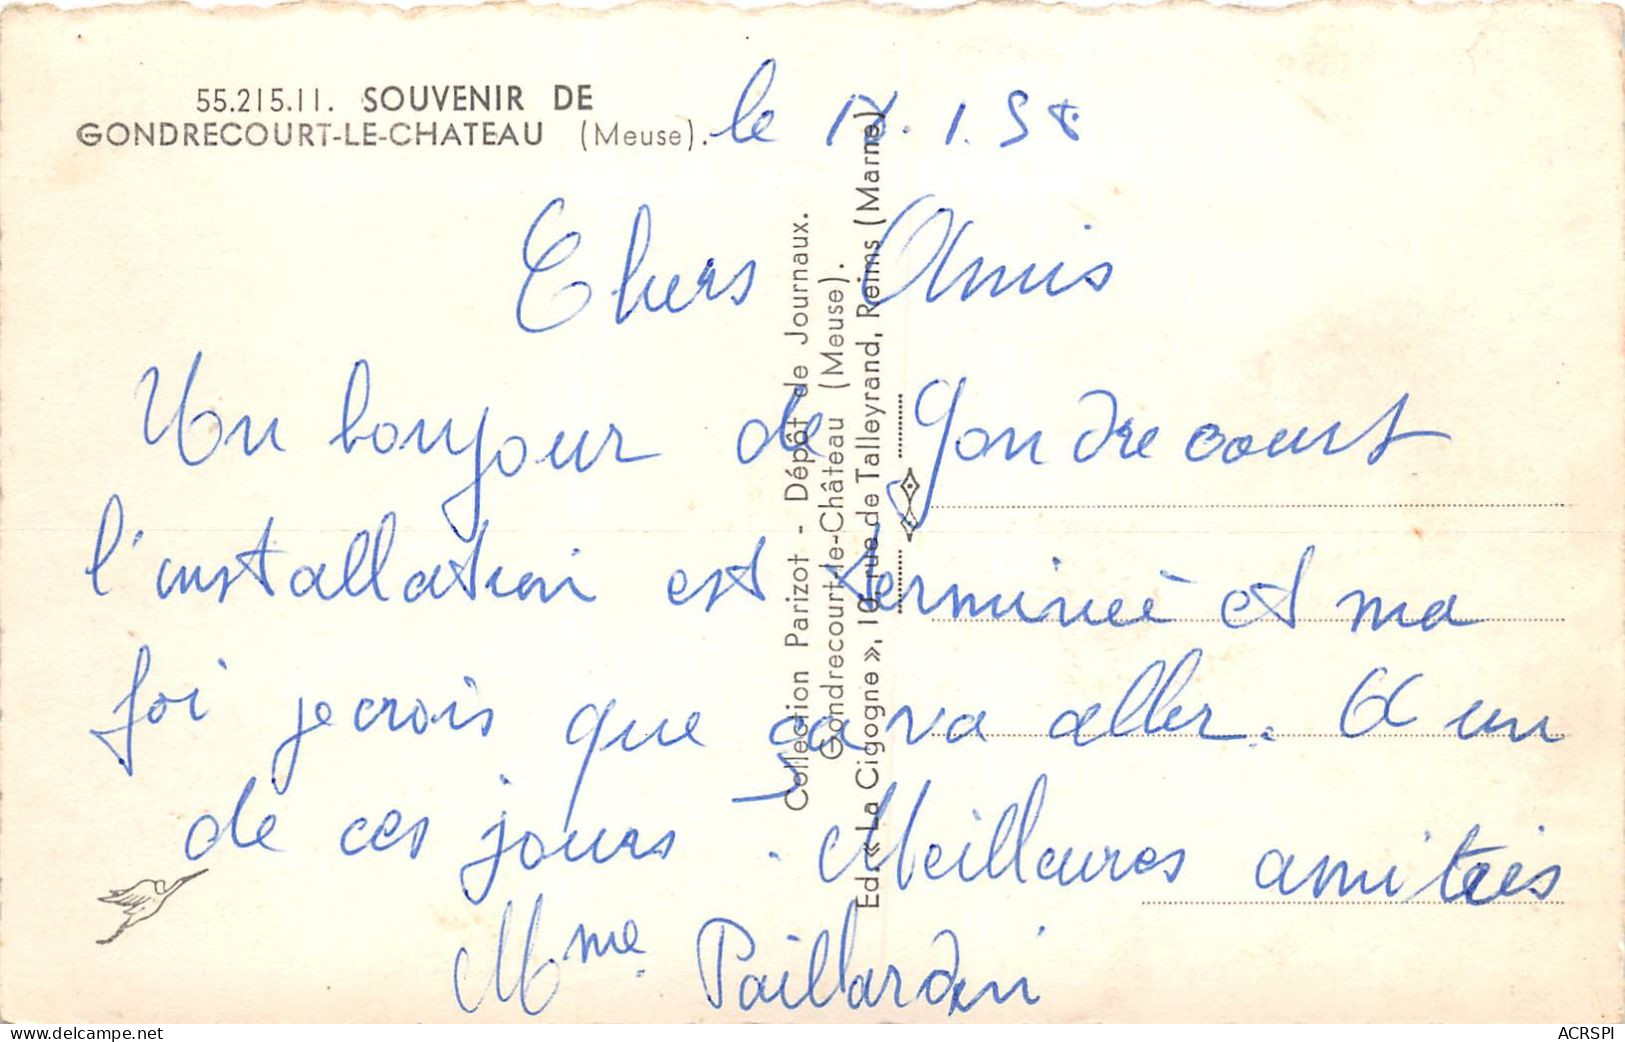 55.215.11. SOUVENIR DE
GONDRECOURT-LE-CHATEAU (Meuse).
le 18.1.58
Chers Amis
Un bonjour de Gondrecourt
l'installation est terminée et ma
foi je crois que ça va aller. A un
de ces jours. Meilleures amitiés
Mme
Collection Parizot - Dépôt de Journaux.
Gondrecourt-le-Château (Meuse).
Ed. « La Cigogne », 10, rue de Talleyrand, Reims (Marne)
delcampe.net
ACRSPI